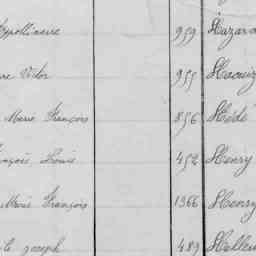 Appollinaire 959 Hazard
Victor 955
Marie François 856 Hédé
François Louis 452 Henry
Marie François 1366 Henry
joseph 489